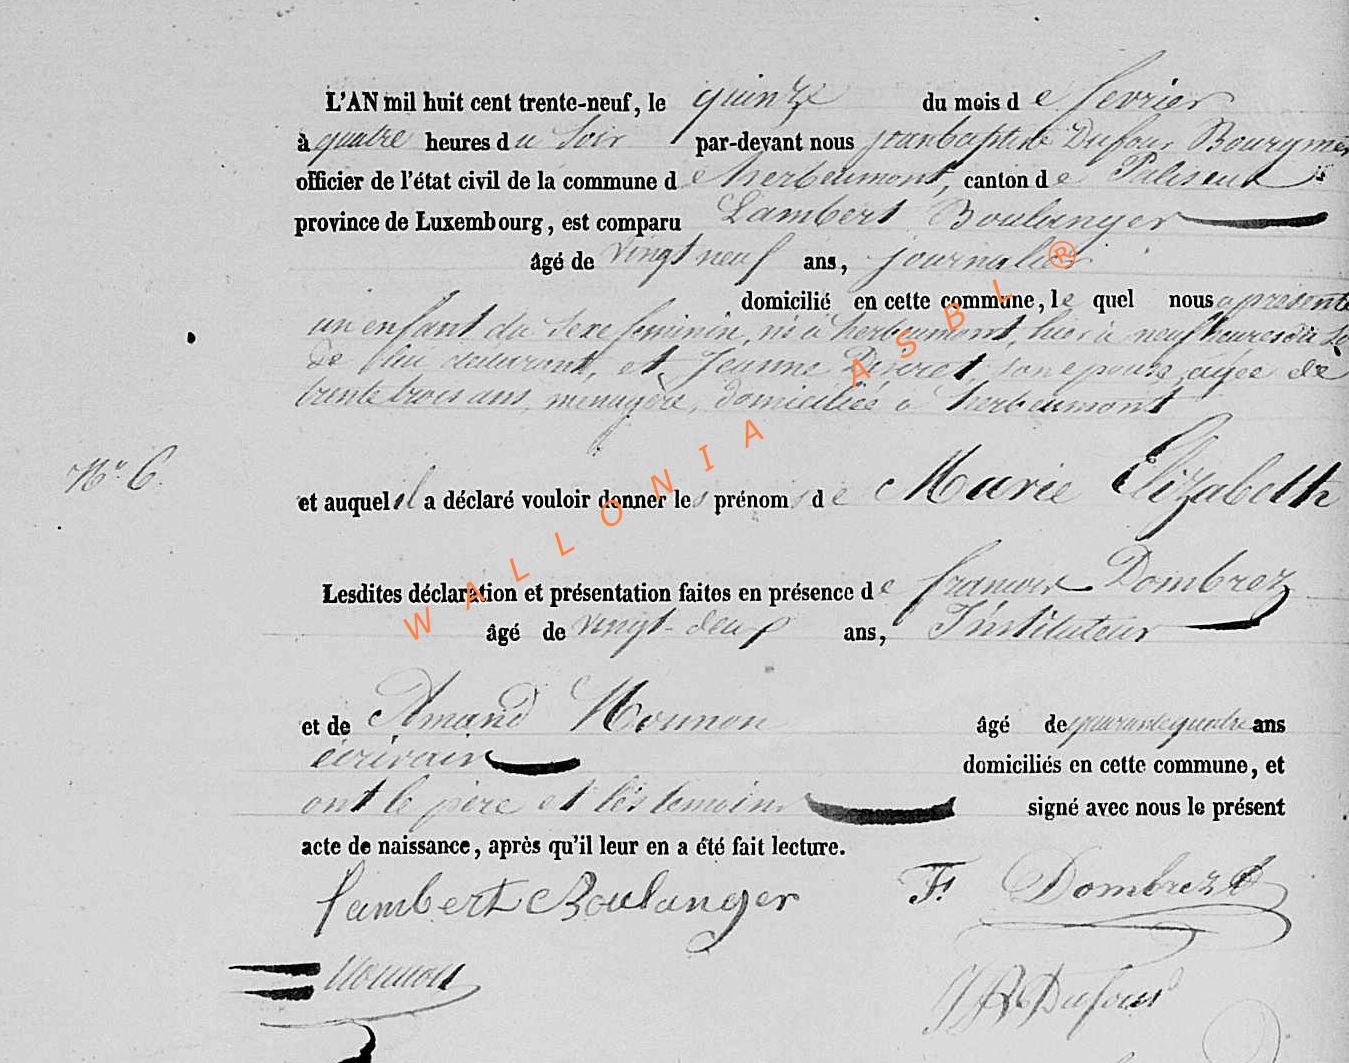 L'AN mil huit cent trente-neuf, le quinze du mois de fevrier
à quatre heures du Soir par-devant nous jeanbaptiste Dufour Bourgme
officier de l'état civil de la commune de herbeumont, canton de Paliseul
province de Luxembourg, est comparu Lambert Boulanger
âgé de vingt neuf ans, journalier
domicilié en cette commune, lequel nous a présenté
un enfant du Sexe feminin, né à herbeumont, hier à neuf heures du So
de lui déclarant, et Jeanne son epouse, agée de
trente trois ans, menagère, domiciliée à herbeumont
N° 6.
et auquel il a déclaré vouloir donner les prénoms de Marie Elizabeth
Lesdites déclaration et présentation faites en présence de francois Dombrez
âgé de vingt-deux ans, Instituteur
et de Amand Nounon âgé de quarante quatre ans
écrivain domiciliés en cette commune, et
ont le père et les temoins signé avec nous le présent
acte de naissance, après qu'il leur en a été fait lecture.
Lambert Boulanger F. Dombrez
Nounon
JB Dufour
WALLONIA ASBL ®